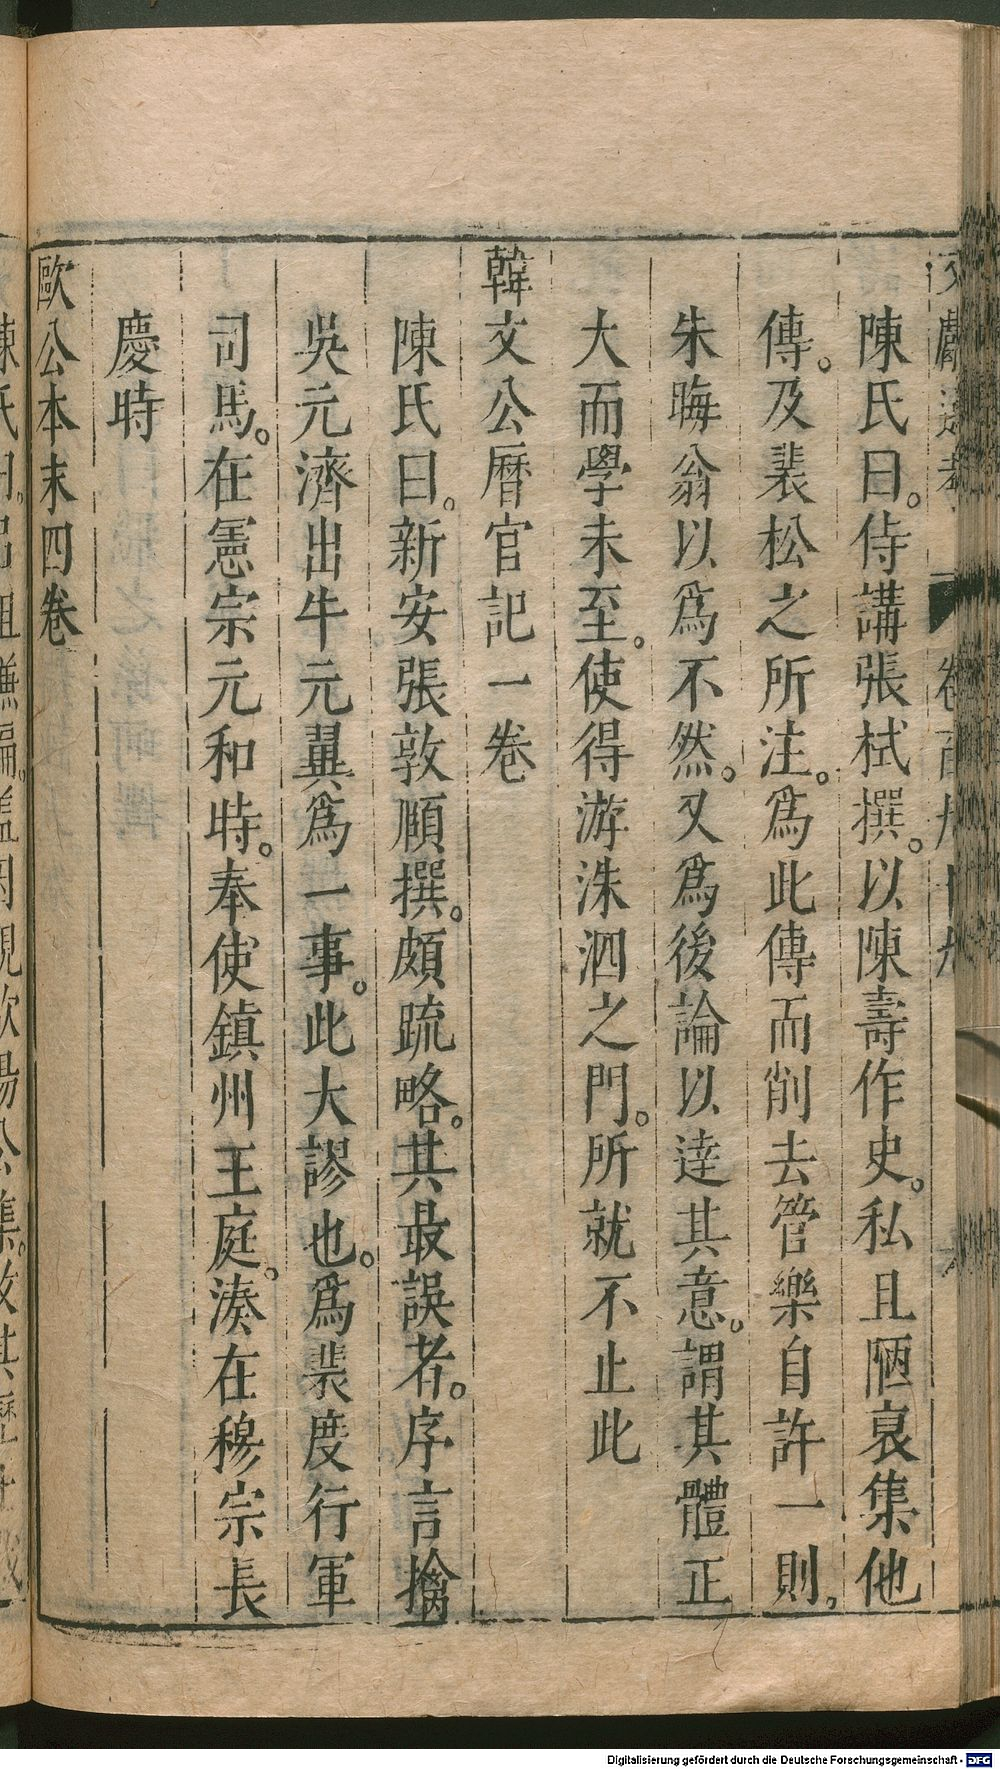 陳氏曰。侍講張栻撰。以陳壽作史。私且陋裒集他
傳。及裴松之所注。為此傳而削去管樂自許一則,
朱晦翁以爲不然。又爲後論以達其意。謂其體正
大而學未至。使得游洙泗之門。所就不止此
韓文公曆官記一卷
陳氏曰。新安張敦頤撰。頗疏略。其最誤者。序言擒
吳元濟出牛元翼爲一事。此大謬也。爲裴度行軍
司馬。在憲宗元和時。奉使鎮州王庭。湊在穆宗長
慶時
歐公本末四卷
Digitalisierung gefördert durch die Deutsche Forschungsgemeinschaft - DFG